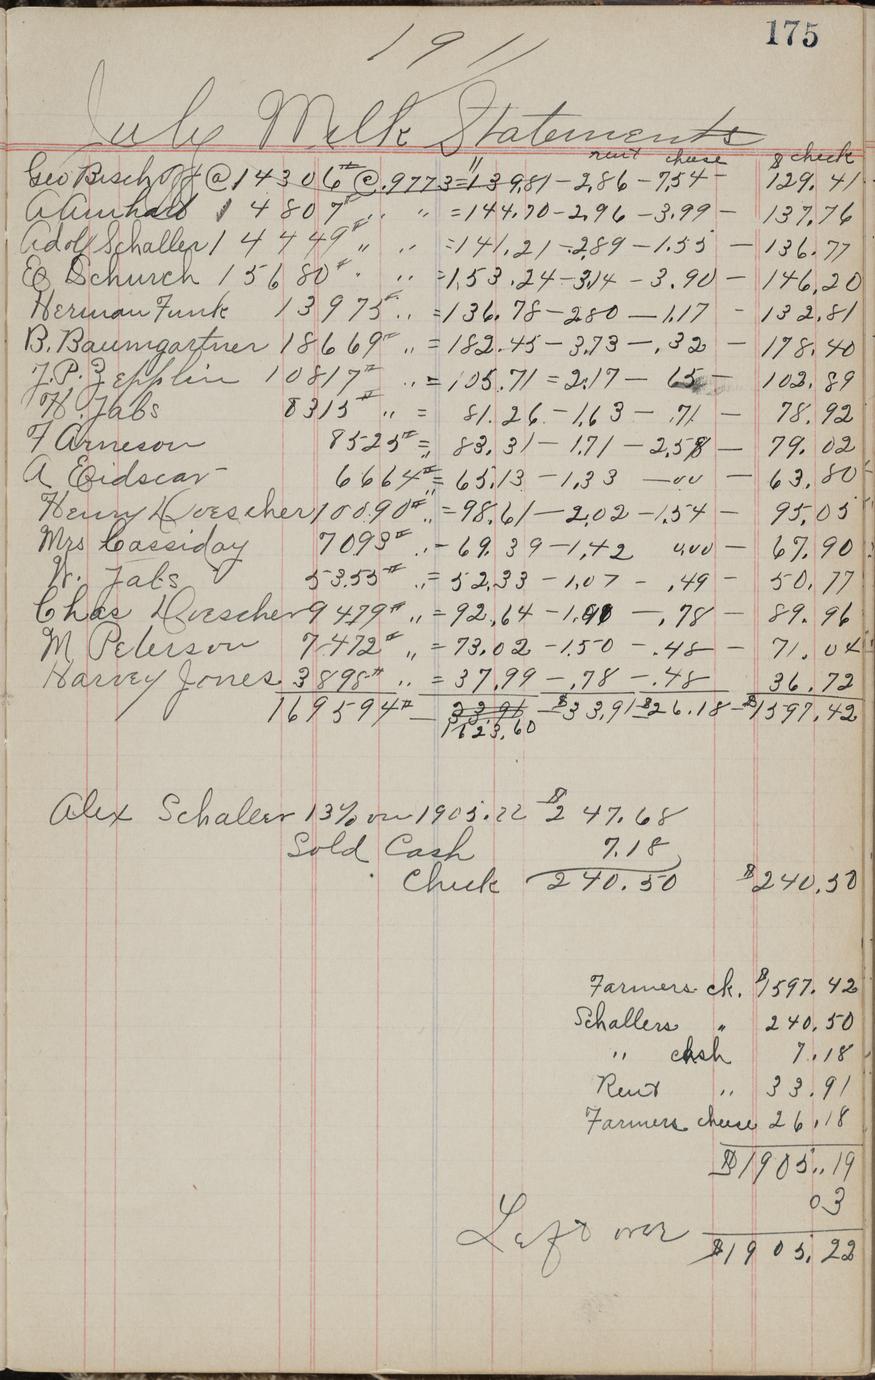 175
1911
July Milk Statements
" rent cheese $ check
Geo Bischoff @ 14306# @ .9773 = 139.81 - 2.86 - 7.54 - 129.41
A Amhalt 14807# " " = 144.70 - 2.96 - 3.99 - 137.76
Adolf Schaller 14449# " " = 141.21 - 2.89 - 1.55 - 136.77
E Schurch 15680# " " = 153.24 - 3.14 - 3.90 - 146.20
Herman Funk 13975# " = 136.78 - 2.80 - 1.17 - 132.81
B. Baumgartner 18669# " = 182.45 - 3.73 - .32 - 178.40
J.P. Zepplin 10817# " = 105.71 = 2.17 - 65 - 102.89
H. Jabs 8315# " = 81.26 - 1.63 - .71 - 78.92
F Arneson 8525# " = 83.31 - 1.71 - 2.58 - 79.02
A Eidscar 6664# " = 65.13 - 1.33 - 00 - 63.80
Henry Doescher 10090# " = 98.61 - 2.02 - 1.54 - 95.05
Mrs Cassiday 7093# " - 69.39 - 1.42 0.00 - 67.90
W. Jabs 5355# " = 52.33 - 1.07 - .49 - 50.77
Chas Doescher 9479# " = 92.64 - 1.90 - .78 - 89.96
M Peterson 7472# " = 73.02 - 1.50 - .48 - 71.04
Harvey Jones 3898# " = 37.99 - .78 - .48 36.72
169594# - 33.91 - $33.91 - $26.18 - $1597.42
1623.60
Alex Schaller 13% on 1905.22 $247.68
Sold Cash 7.18
Check 240.50 $240.50
Farmers ck. $1597.42
Schallers " 240.50
" cash 7.18
Rent " 33.91
Farmers cheese 26.18
$1905.19
03
Left over
$1905.22